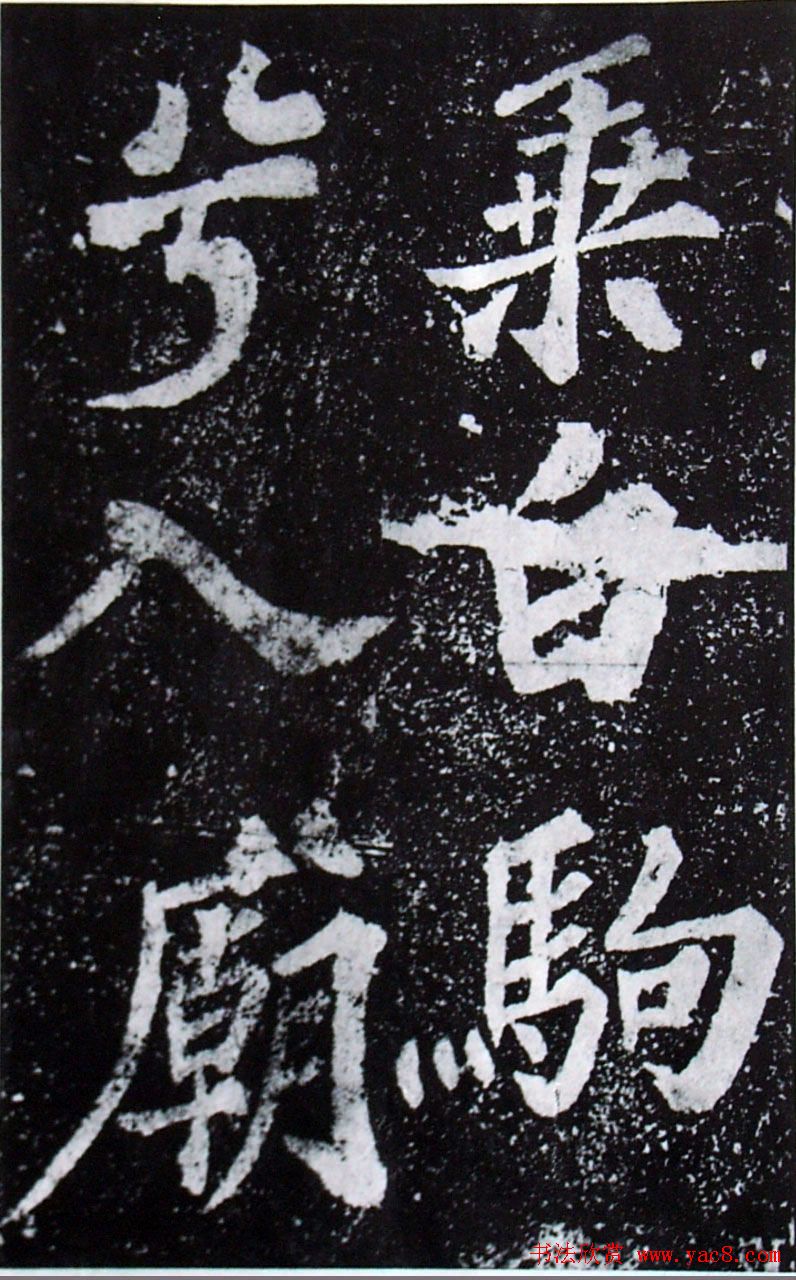 乘白駒
兮入廟
书法欣赏 www.yac8.com